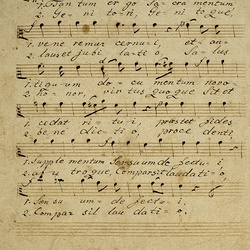 1. Tantum ergo Sacramentum
2. Genitori, Genitoque,
1. veneremur cernui, et an
2. laus et jubilatio, Salus
1. tiquum documentum novo
2. honor, virtus quoque sit et
1. cedat ritui, prastet fides
2. benedictio, procedenti
1. Supplementum Sensuum defectui.
2. ab utroque, Compar sit laudatio.
1. Sensuum defectui.
2. Compar sit laudatio.